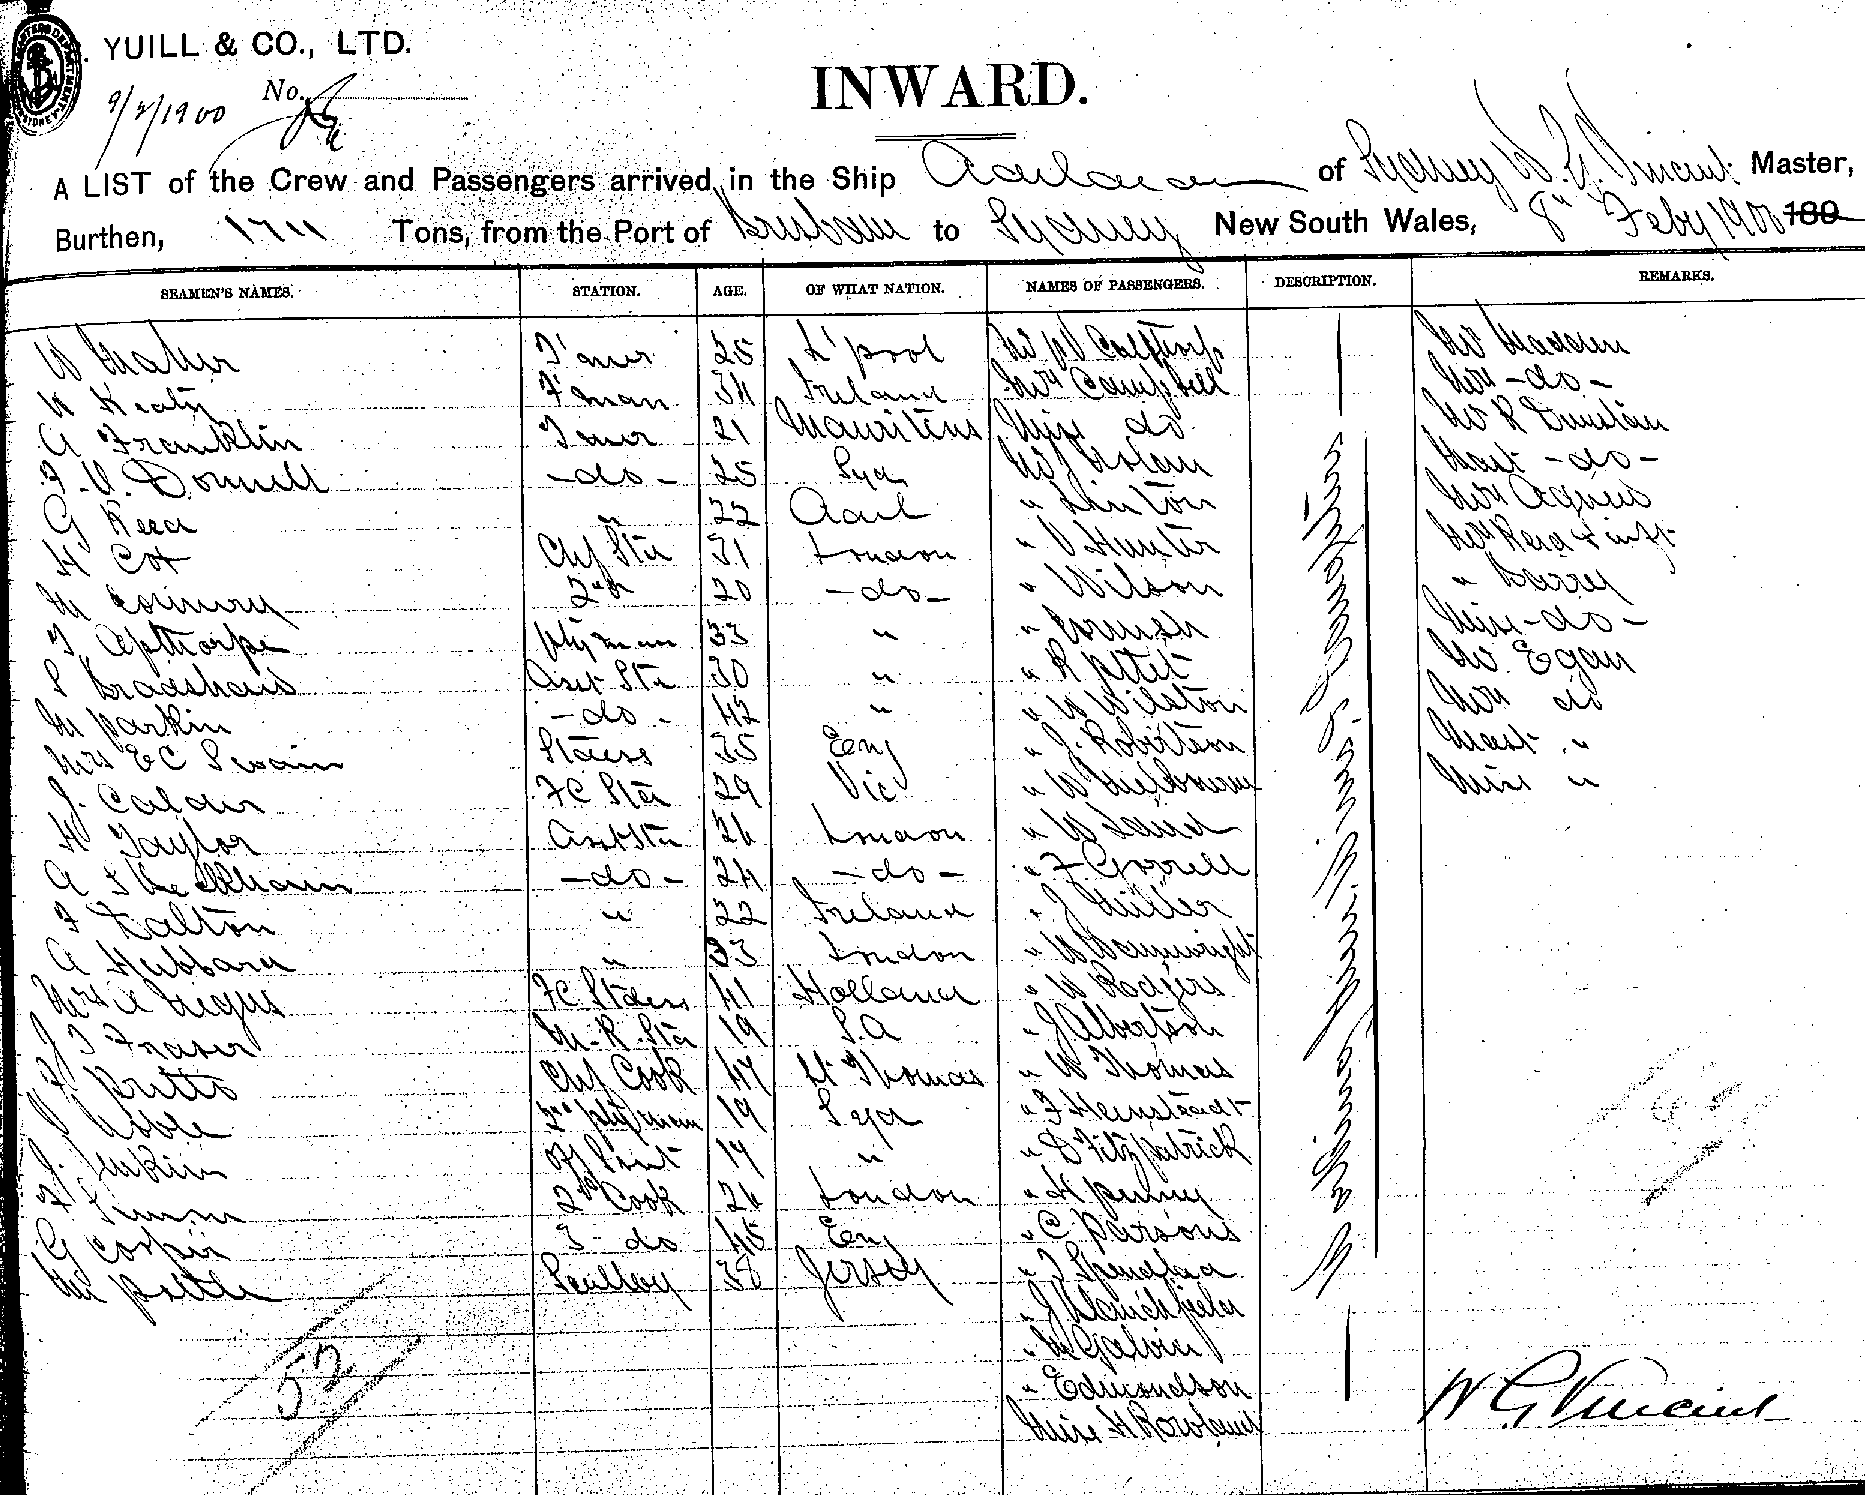 YUILL & CO., LTD.
9/2/1900 No.
INWARD.
A LIST of the Crew and Passengers arrived in the Ship Aarlaran of Sydney W. G. Vincent Master,
Burthen, 1711 Tons, from the Port of Brisbane to Sydney New South Wales, 8th Feby 1900 189
SEAMEN'S NAMES. STATION. AGE. OF WHAT NATION. NAMES OF PASSENGERS. DESCRIPTION. REMARKS.
W Maher T'mer 25 L'pool Mr W Calthorp Mr Madden
Keaty F'man 34 Ireland Mrs Campbell Mrs -do-
A Franklin T'mer 21 Mauritius Miss do Mr R Dunstan
Donnell -do- 25 Syd Mr J Nolan Mast -do-
G Reed " 22 Aarl " Linton Mrs Agnew
H Cox Chf Std 31 London " Hunter Mrs Reid & inft
M 2nd 20 -do- " Wilson " Barry
T Apthorpe ptyman 33 " " Cornish Miss -do-
S Bradshaw Asst Std 30 " " R Mr. Egan
M Parkin -do- 42 " " W Wilston Mrs do
Mrs E C Swain Stdess 35 Eng " J. Robertson Mast "
J. Calder FC Std 29 Vic " W Melbourne Miss "
H Taylor Asst Std 26 London " W
A -do- 24 -do- " F Gorrell
F Dalton " 22 Ireland " J Miller
A Hubbard " 33 London " W Wainwright
Mrs A Negus FC Stdess 41 Holland " W Rodgers
J T Fraser M.R. Std 19 S.A " J Albertson
Britto Chf Cook 47 St Thomas " W Thomas
Noble 2nd ptyman 19 Syd " F Heinstadt
J. Jenkins 17 " " D Fitzpatrick
F 2nd Cook 26 London " H Penny
G Cooper 3 do 45 Eng " C Parsons
M Pottle Sculley 38 Jersey " T
" J
" M Galvin
" Edmondson
Miss H Rowland
52
W G Vincent